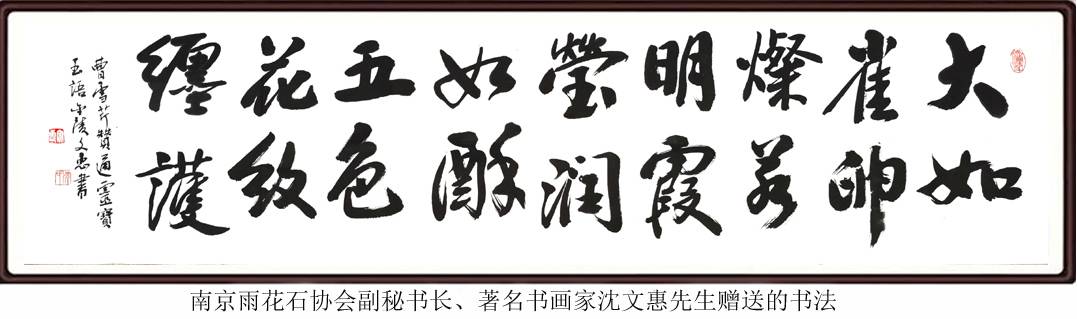 大如
雀卵
燦若
明霞
瑩润
如酥
五色
花紋
纏護
曹雪芹贊通靈寶
玉語金陵文惠書
南京雨花石协会副秘书长、著名书画家沈文惠先生赠送的书法